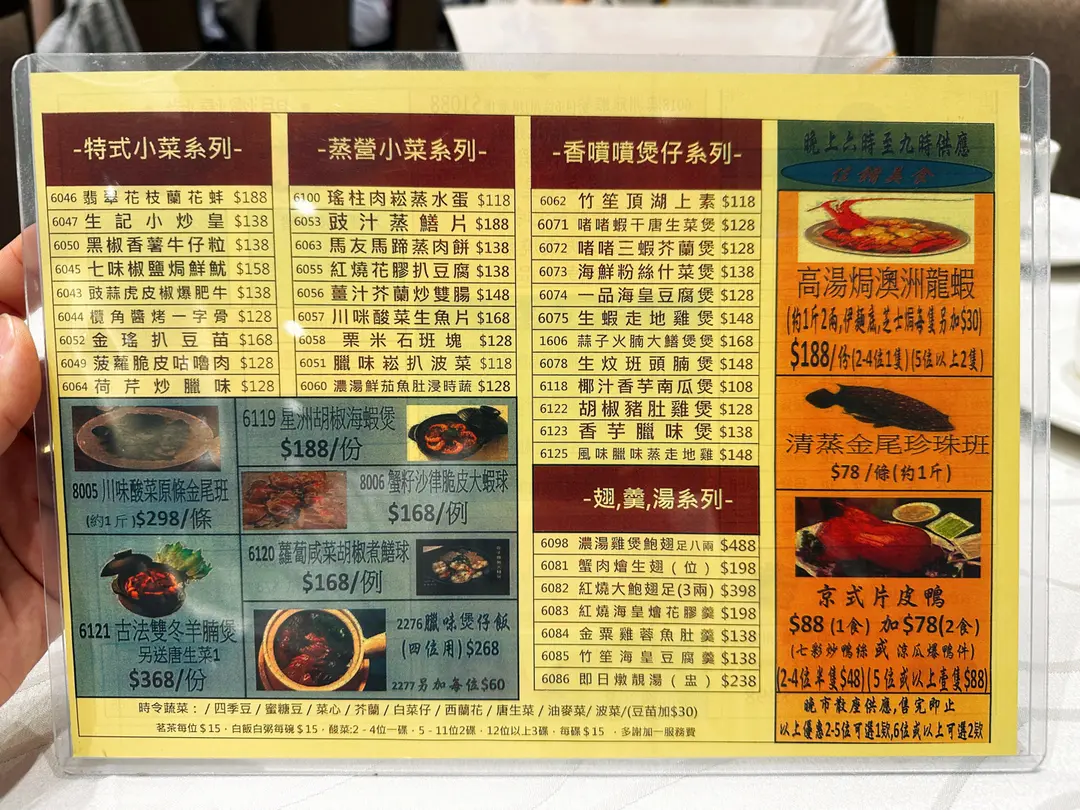 -特式小菜系列-
6046 翡翠花枝蘭花蚌 $188
6047 生記小炒皇 $138
6050 黑椒香薯牛仔粒 $138
6045 七味椒鹽焗鮮魷 $158
6043 豉蒜虎皮椒爆肥牛 $138
6044 欖角醬烤一字骨 $128
6052 金瑤扒豆苗 $168
6049 菠蘿脆皮咕嚕肉 $128
6064 荷芹炒臘味 $128
-蒸營小菜系列-
6100 瑤柱肉崧蒸水蛋 $118
6053 豉汁蒸鱔片 $188
6063 馬友馬蹄蒸肉餅 $138
6055 紅燒花膠扒豆腐 $138
6056 薑汁芥蘭炒雙腸 $148
6057 川咪酸菜生魚片 $168
6058 栗米石班塊 $128
6051 臘味崧扒菠菜 $118
6060 濃湯鮮茄魚肚浸時蔬 $128
-香噴噴煲仔系列-
6062 竹笙頂湖上素 $118
6071 啫啫蝦干唐生菜煲 $128
6072 啫啫三蝦芥蘭煲 $128
6073 海鮮粉絲什菜煲 $138
6074 一品海皇豆腐煲 $128
6075 生蝦走地雞煲 $148
1606 蒜子火腩大鱔煲煲 $168
6078 生炆班頭腩煲 $148
6118 椰汁香芋南瓜煲 $108
6122 胡椒豬肚雞煲 $128
6123 香芋臘味煲 $138
6125 風味臘味蒸走地雞 $148
-翅,羹,湯系列-
6098 濃湯雞煲鮑翅足八兩 $488
6081 蟹肉燴生翅(位) $198
6082 紅燒大鮑翅足(3兩) $398
6083 紅燒海皇燴花膠羹 $198
6084 金粟雞蓉魚肚羹 $138
6085 竹笙海皇豆腐羹 $138
6086 即日燉靚湯(盅) $238
8005 川味酸菜原條金尾班
(約1斤)$298/條
6119 星洲胡椒海蝦煲
$188/份
8006 蟹籽沙律脆皮大蝦球
$168/例
6121 古法雙冬羊腩煲
另送唐生菜1
$368/份
6120 蘿蔔咸菜胡椒煮鱔球
$168/例
2276 臘味煲仔飯
(四位用)$268
2277另加每位$60
晚上六時至九時供應
高湯焗澳洲龍蝦
(約1斤2兩,伊麵底,芝士焗每隻另加$30)
$188/份(2-4位1隻)(5位以上2隻)
清蒸金尾珍珠班
$78 /條(約1斤)
京式片皮鴨
$88 (1食) 加 $78(2食)
(七彩炒鴨絲 或 涼瓜爆鴨件)
(2-4位半隻$48)(5位或以上壹隻$88)
晚市散座供應,售完即止
以上優惠2-5位可選1款,6位或以上可選2款
時令蔬菜：/四季豆/蜜糖豆/菜心/芥蘭/白菜仔/西蘭花/唐生菜/油麥菜/波菜/(豆苗加$30)
茗茶每位$15﹒白飯白粥每碗$15﹒酸菜:2-4位一碟﹒5-11位2碟﹒12位以上3碟﹒每碟$15﹒多謝加一服務費